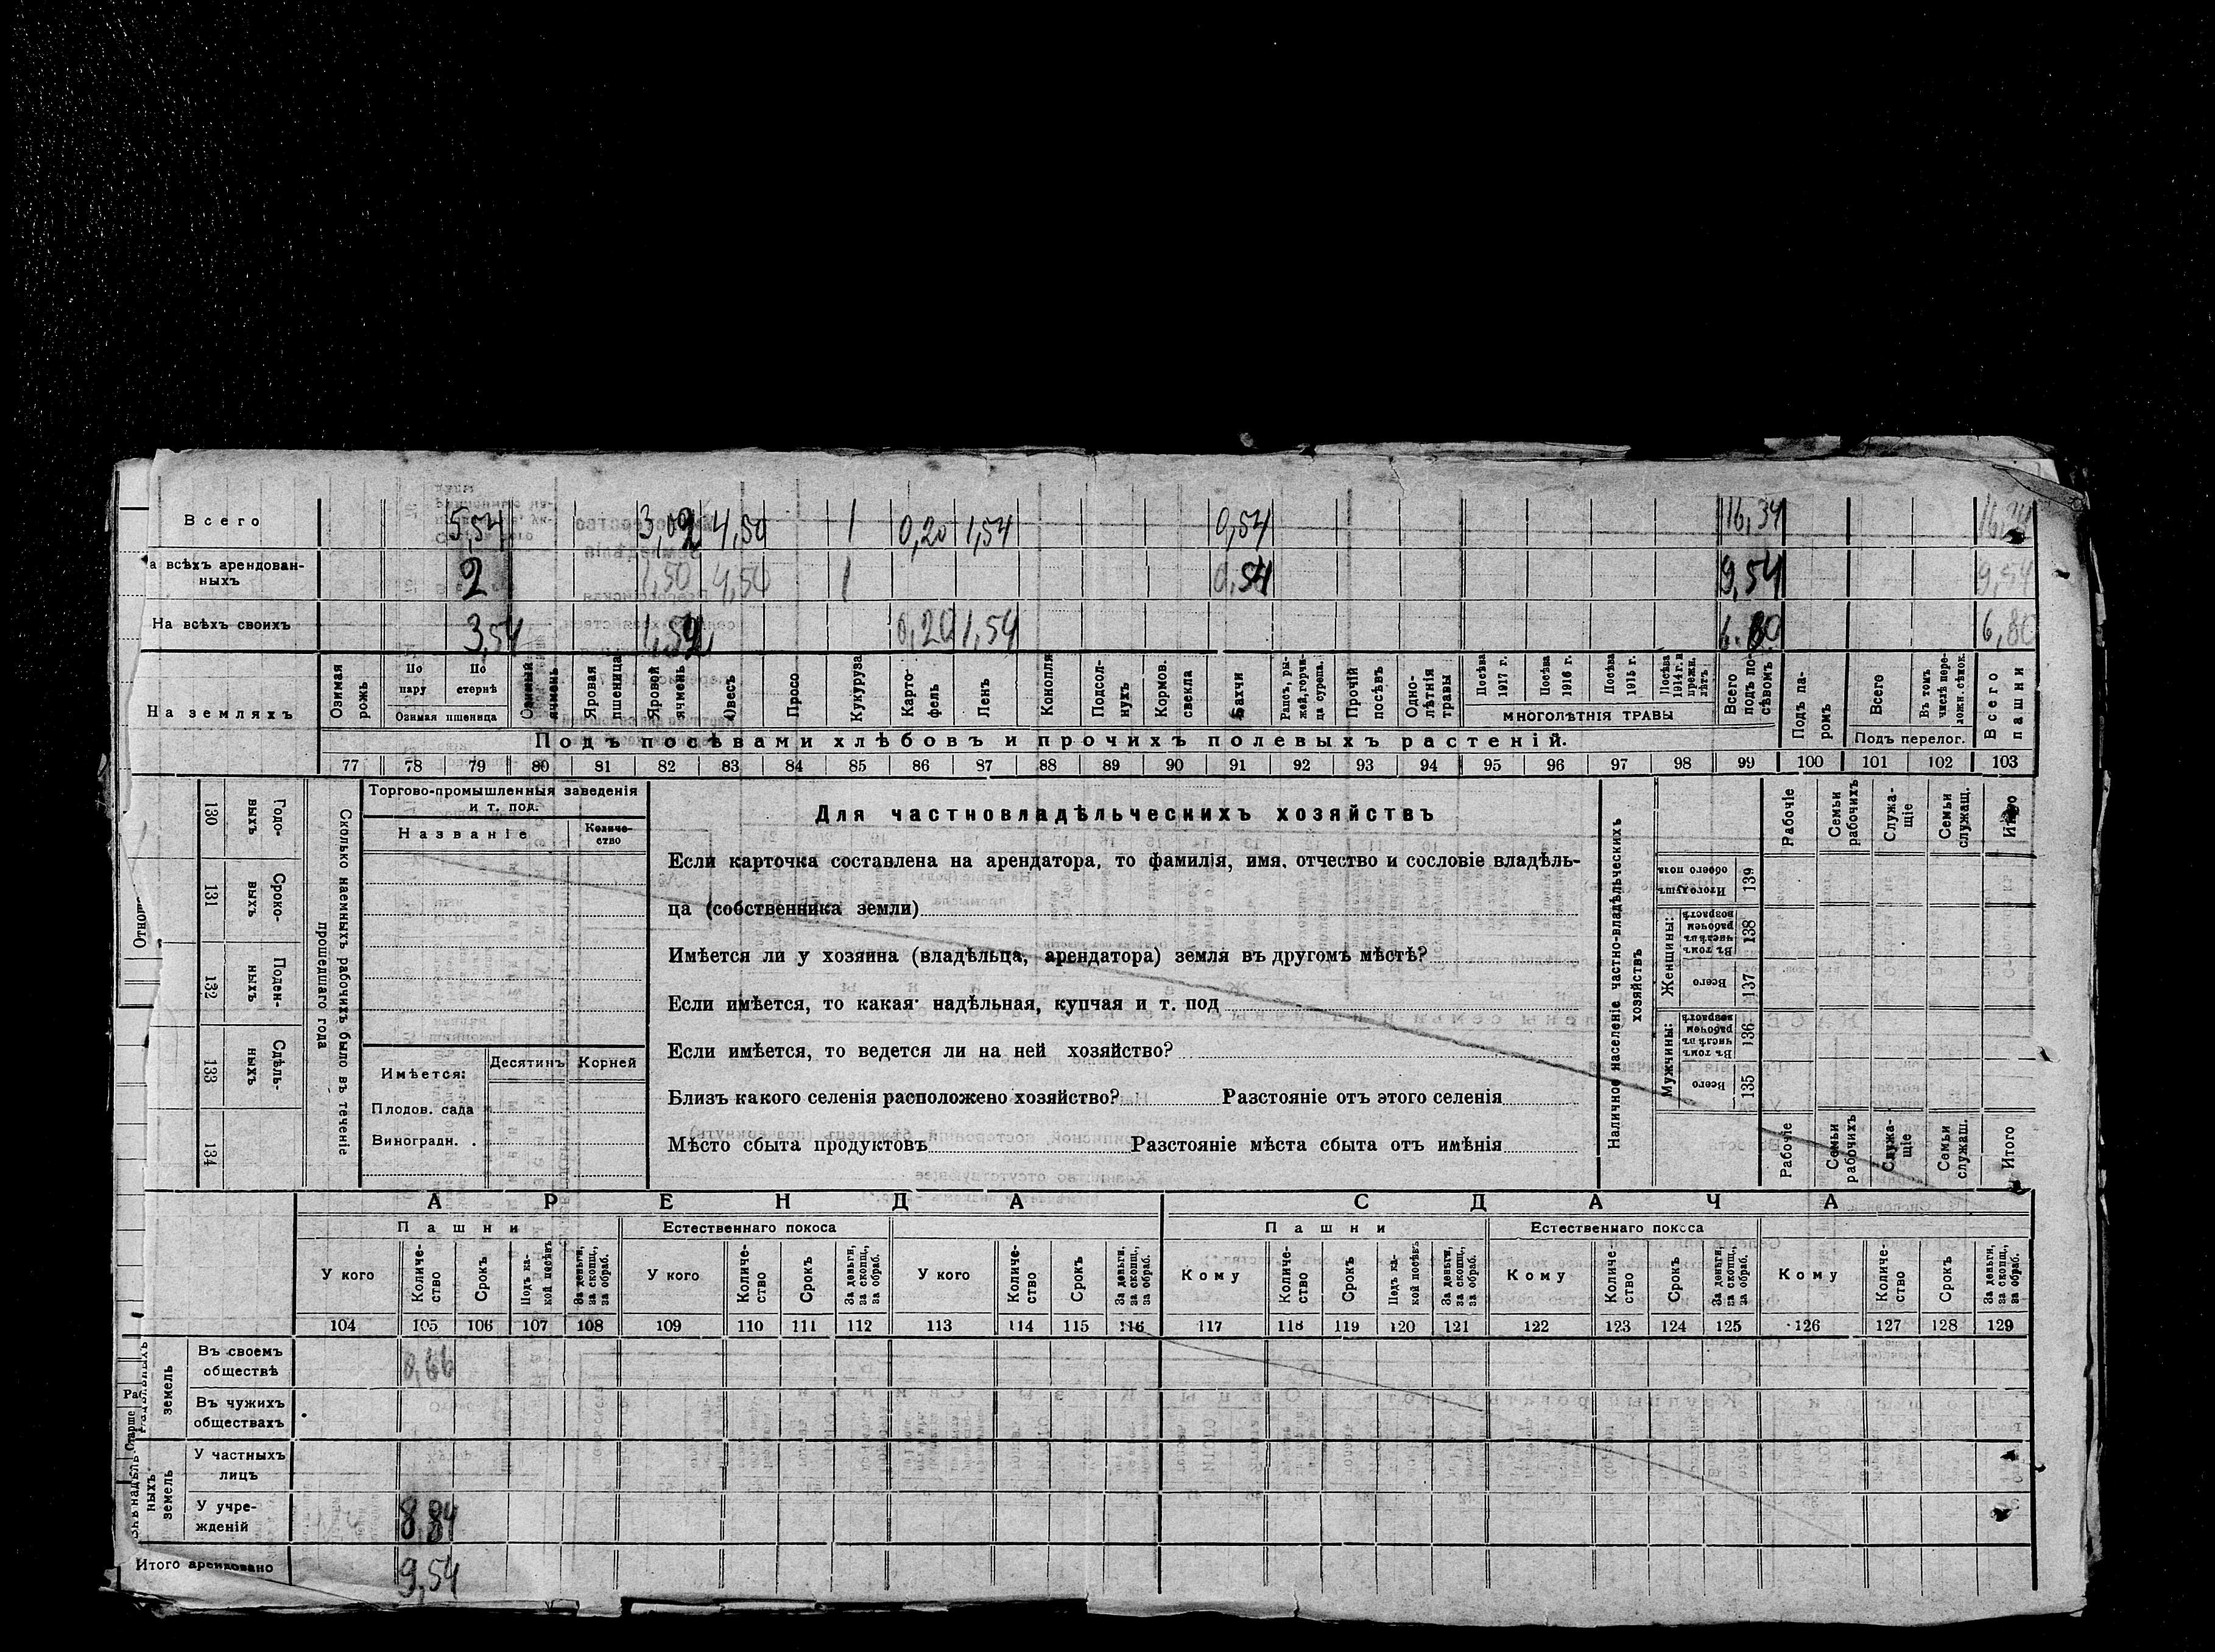 Всего 5,54 3,02 4,50 1 0,20 1,54 0,54 16,34
а всѣхъ арендован-
ныхъ 2 1,50 4,50 1 0,54 9,54 9,54
На всѣхъ своихъ 3,54 1,52 0,20 1,54 6.80 6,80
На земляхъ
Озимая рожь
По пару
По стернѣ
Озимая пшеница
Озимый ячмень
Яровая пшеница
Яровой ячмень
Овесъ
Просо
Кукуруза
Карто-
фель
Ленъ
Конопля
Подсол-
нухъ
Кормов.
свекла
Бахчи
Рапсъ, ры-
жей, горчи-
ца сурепа.
Прочій
посѣвъ
Одно-
лѣтнія
травы
Посѣва
1917 г.
Посѣва
1916 г.
Посѣва
1915 г.
Посѣва
1914 г. и
прежн.
лѣтъ
МНОГОЛѢТНІЯ ТРАВЫ
Всего
подъ по-
сѣвомъ
Подъ па-
ромъ
Всего
Въ томъ
числѣ пере-
ложн. сѣнок.
Подъ перелог.
Всего
пашни
Подъ посѣвами хлѣбовъ и прочихъ полевыхъ растеній.
77 78 79 80 81 82 83 84 85 86 87 88 89 90 91 92 93 94 95 96 97 98 99 100 101 102 103
130 Годо-
выхъ
131 Сроко-
выхъ
132 Поден-
ныхъ
133 Сдѣль-
ныхъ
134
Сколько наемныхъ рабочихъ было въ теченіе
прошедшаго года
Торгово-промышленныя заведенія
и т. под.
Названіе
Количе-
ство
Имѣется:
Десятинъ Корней
Плодов. сада
Виноградн. .
Для частновладѣльческихъ хозяйствъ
Если карточка составлена на арендатора, то фамилія, имя, отчество и сословіе владѣль-
ца (собственника земли)
Имѣется ли у хозяина (владѣльца, арендатора) земля въ другомъ мѣстѣ?
Если имѣется, то какая: надѣльная, купчая и т. под
Если имѣется, то ведется ли на ней хозяйство?
Близъ какого селенія расположено хозяйство? Разстояніе отъ этого селенія
Мѣсто сбыта продуктовъ Разстояніе мѣста сбыта отъ имѣнія
Наличное населеніе частно-владѣльческихъ
хозяйствъ
Рабочіе
Семьи
рабочихъ
Служа-
щіе
Семьи
служащ.
Итого
Итого душъ
обоего пола
139
Женщины:
Въ томъ
числѣ въ
рабочем
возрастѣ
138
Всего
137
Мужчины:
Въ томъ
числѣ въ
рабочем
возрастѣ
136
Всего
135
Рабочіе
Семьи
рабочихъ
Служа-
щіе
Семьи
служащ.
Итого
АРЕНДА СДАЧА
Пашни Естественнаго покоса Пашни Естественнаго покоса
У кого
Количе-
ство
Срокъ
Подъ ка-
кой посѣвъ
За деньги,
за скопщ.,
за обраб.
У кого
Количе-
ство
Срокъ
За деньги,
за скопщ.,
за обраб.
У кого
Количе-
ство
Срокъ
За деньги,
за скопщ.,
за обраб.
Кому
Количе-
ство
Срокъ
Подъ ка-
кой посѣвъ
За деньги,
за скопщ.,
за обраб.
Кому
Количе-
ство
Срокъ
За деньги,
за скопщ.,
за обраб.
Кому
Количе-
ство
Срокъ
За деньги,
за скопщ.,
за обраб.
104 105 106 107 108 109 110 111 112 113 114 115 116 117 118 119 120 121 122 123 124 125 126 127 128 129
земель
Въ своемъ
обществѣ 0,66
Въ чужихъ
обществахъ
Старше
ныхъ
земель
У частныхъ
лицъ
У учре-
жденій 8,84
Итого арендовано 9,54